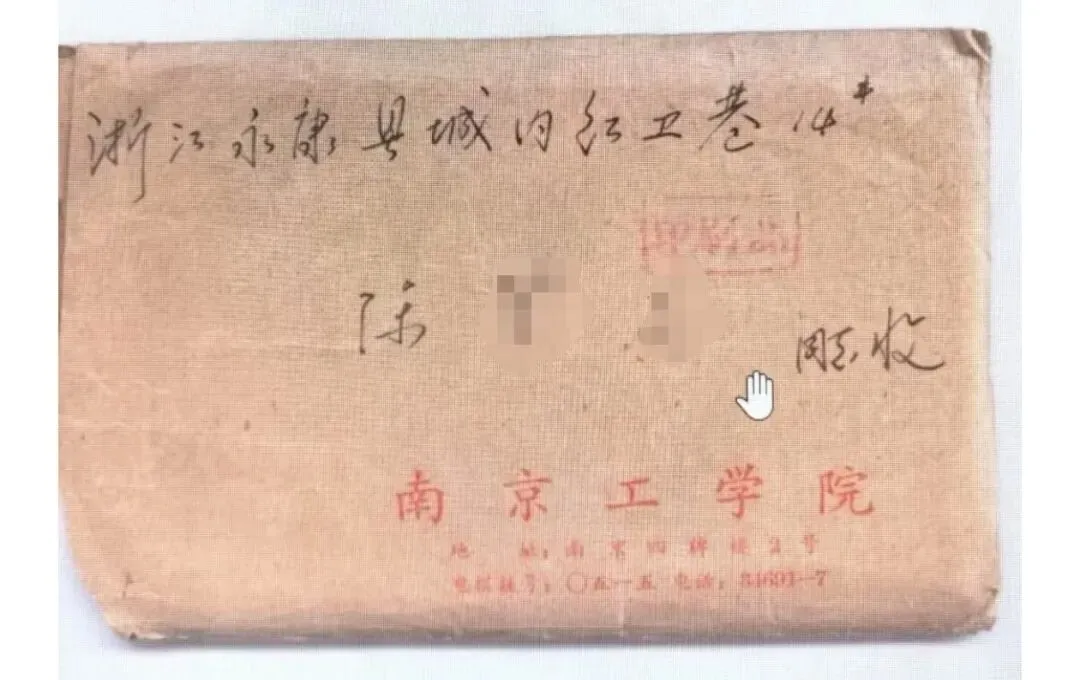 浙江永康县城内红卫巷14#
印刷品
陈 收
南京工学院
地 址：南京四牌楼2号
电报挂号：〇五一五 电话：34691—7